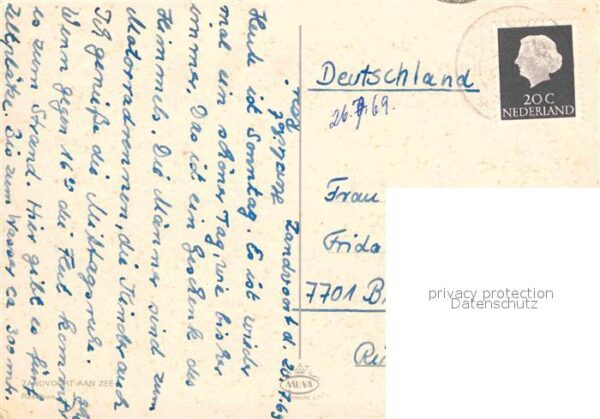 Zandvoort d. 20.7.69
Heute ist Sonntag. Es ist wieder
mal ein schöner Tag, wie bisher
immer. Das ist ein Geschenk des
Himmels. Die Männer sind zum
Motorradrennen, die Kinder auch
Ich genieße die Mittagsruhe.
Wenn gegen 16°° die Flut kommt
es zum Strand. Hier gibt es fünf
Zeltplätze. Bis zum Wasser ca 300 mtr.
Deutschland
26.7.69.
20 C
NEDERLAND
Frau
Frida
7701 B
privacy protection
Datenschutz
MUVA
ZANDVOORT AAN ZEE